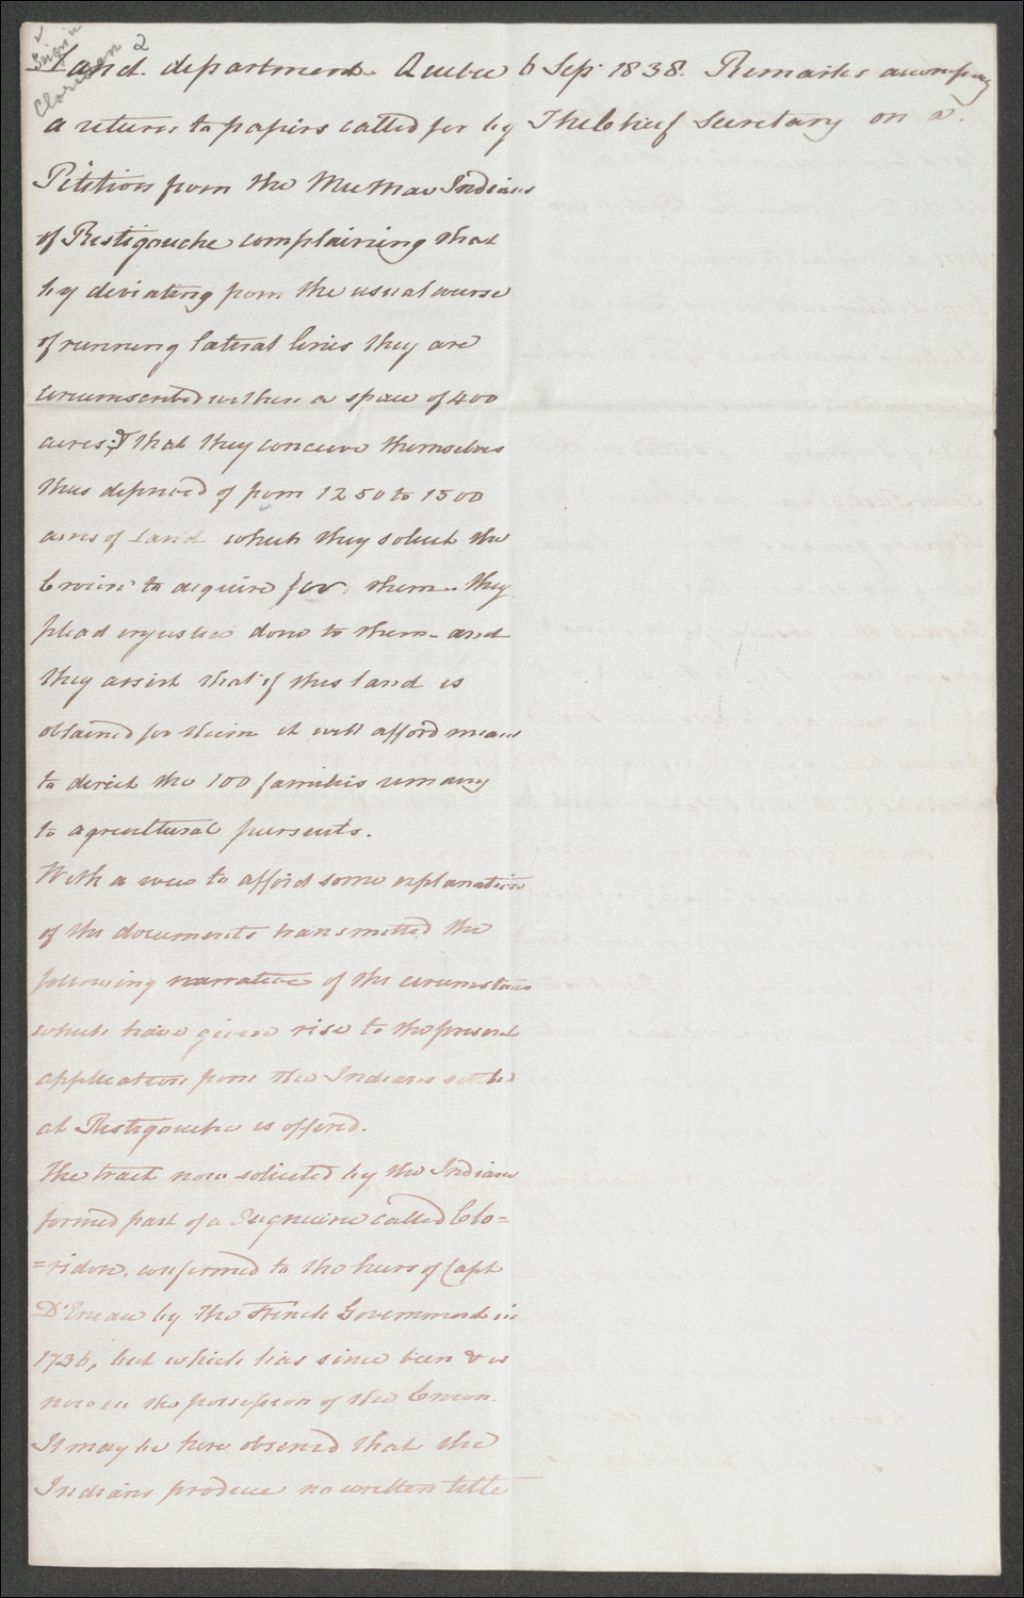 2
Seig'ie
Cloridon
Land department Quebec 6 Sep: 1838. Remarks accompany
a return to papers called for by The Chief Secretary on a
Petition from the MicMac Indians
of Restigouche complaining that
by deviating from the usual course
of running lateral lines they are
circumscribed within a space of 400
acres; & that they conceive themselves
thus deprived of from 1250 to 1500
acres of Land which they solicit the
Crown to acquire for them. they
plead injustice done to them - and
they assert that if this land is
obtained for them it will afford means
to direct the 100 families remang
to agricultural pursuits.
With a view to afford some explanation
of the documents transmitted the
following narrative of the circumstances
which have given rise to the present
application from the Indians settled
at Restigouche is offered.
The tract now solicited by the Indians
formed part of a Seigneurie called Clo=
=ridon, confirmed to the heirs of Capt
by the French Government in
1736, but which has since been & is
now in the possession of the Crown.
It may be here observed that the
Indians produce no written title